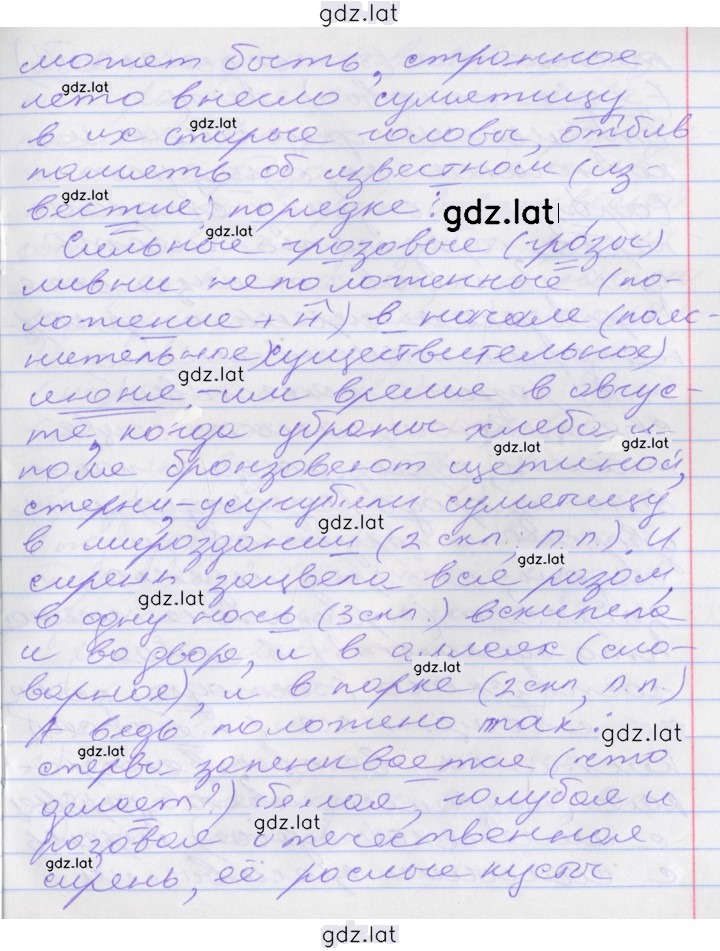 gdz.lat
может быть, странное
gdz.lat
лето внесло сумятицу
gdz.lat
в их старые головы, отбив
память об известном (из
gdz.lat
вестие) порядке:
gdz.lat
Сильные грозовые (грозы)
gdz.lat
ливни неположенные (по-
ложение + н) в начале (пояс-
нительное) существительное)
gdz.lat
июня, -им время в авгус-
те, когда убраны хлеба и
gdz.lat
gdz.lat
поля бронзовеют щетиной
стерни,-усугубили сумятицу
gdz.lat
в мироздании (2 скл. П.п). И
gdz.lat
сирень зацвела вся разом,
gdz.lat
в одну ночь (3 скл.) вскипела
и во дворе, и в аллеях (сло-
gdz.lat
варное), и в парке (2 скл, П.п.)
А ведь положено так:
gdz.lat
gdz.lat
сперва запенивается (что
делает?) белая, голубая и
gdz.lat
розовая отечественная
gdz.lat
сирень, её рослые кусты
gdz.lat